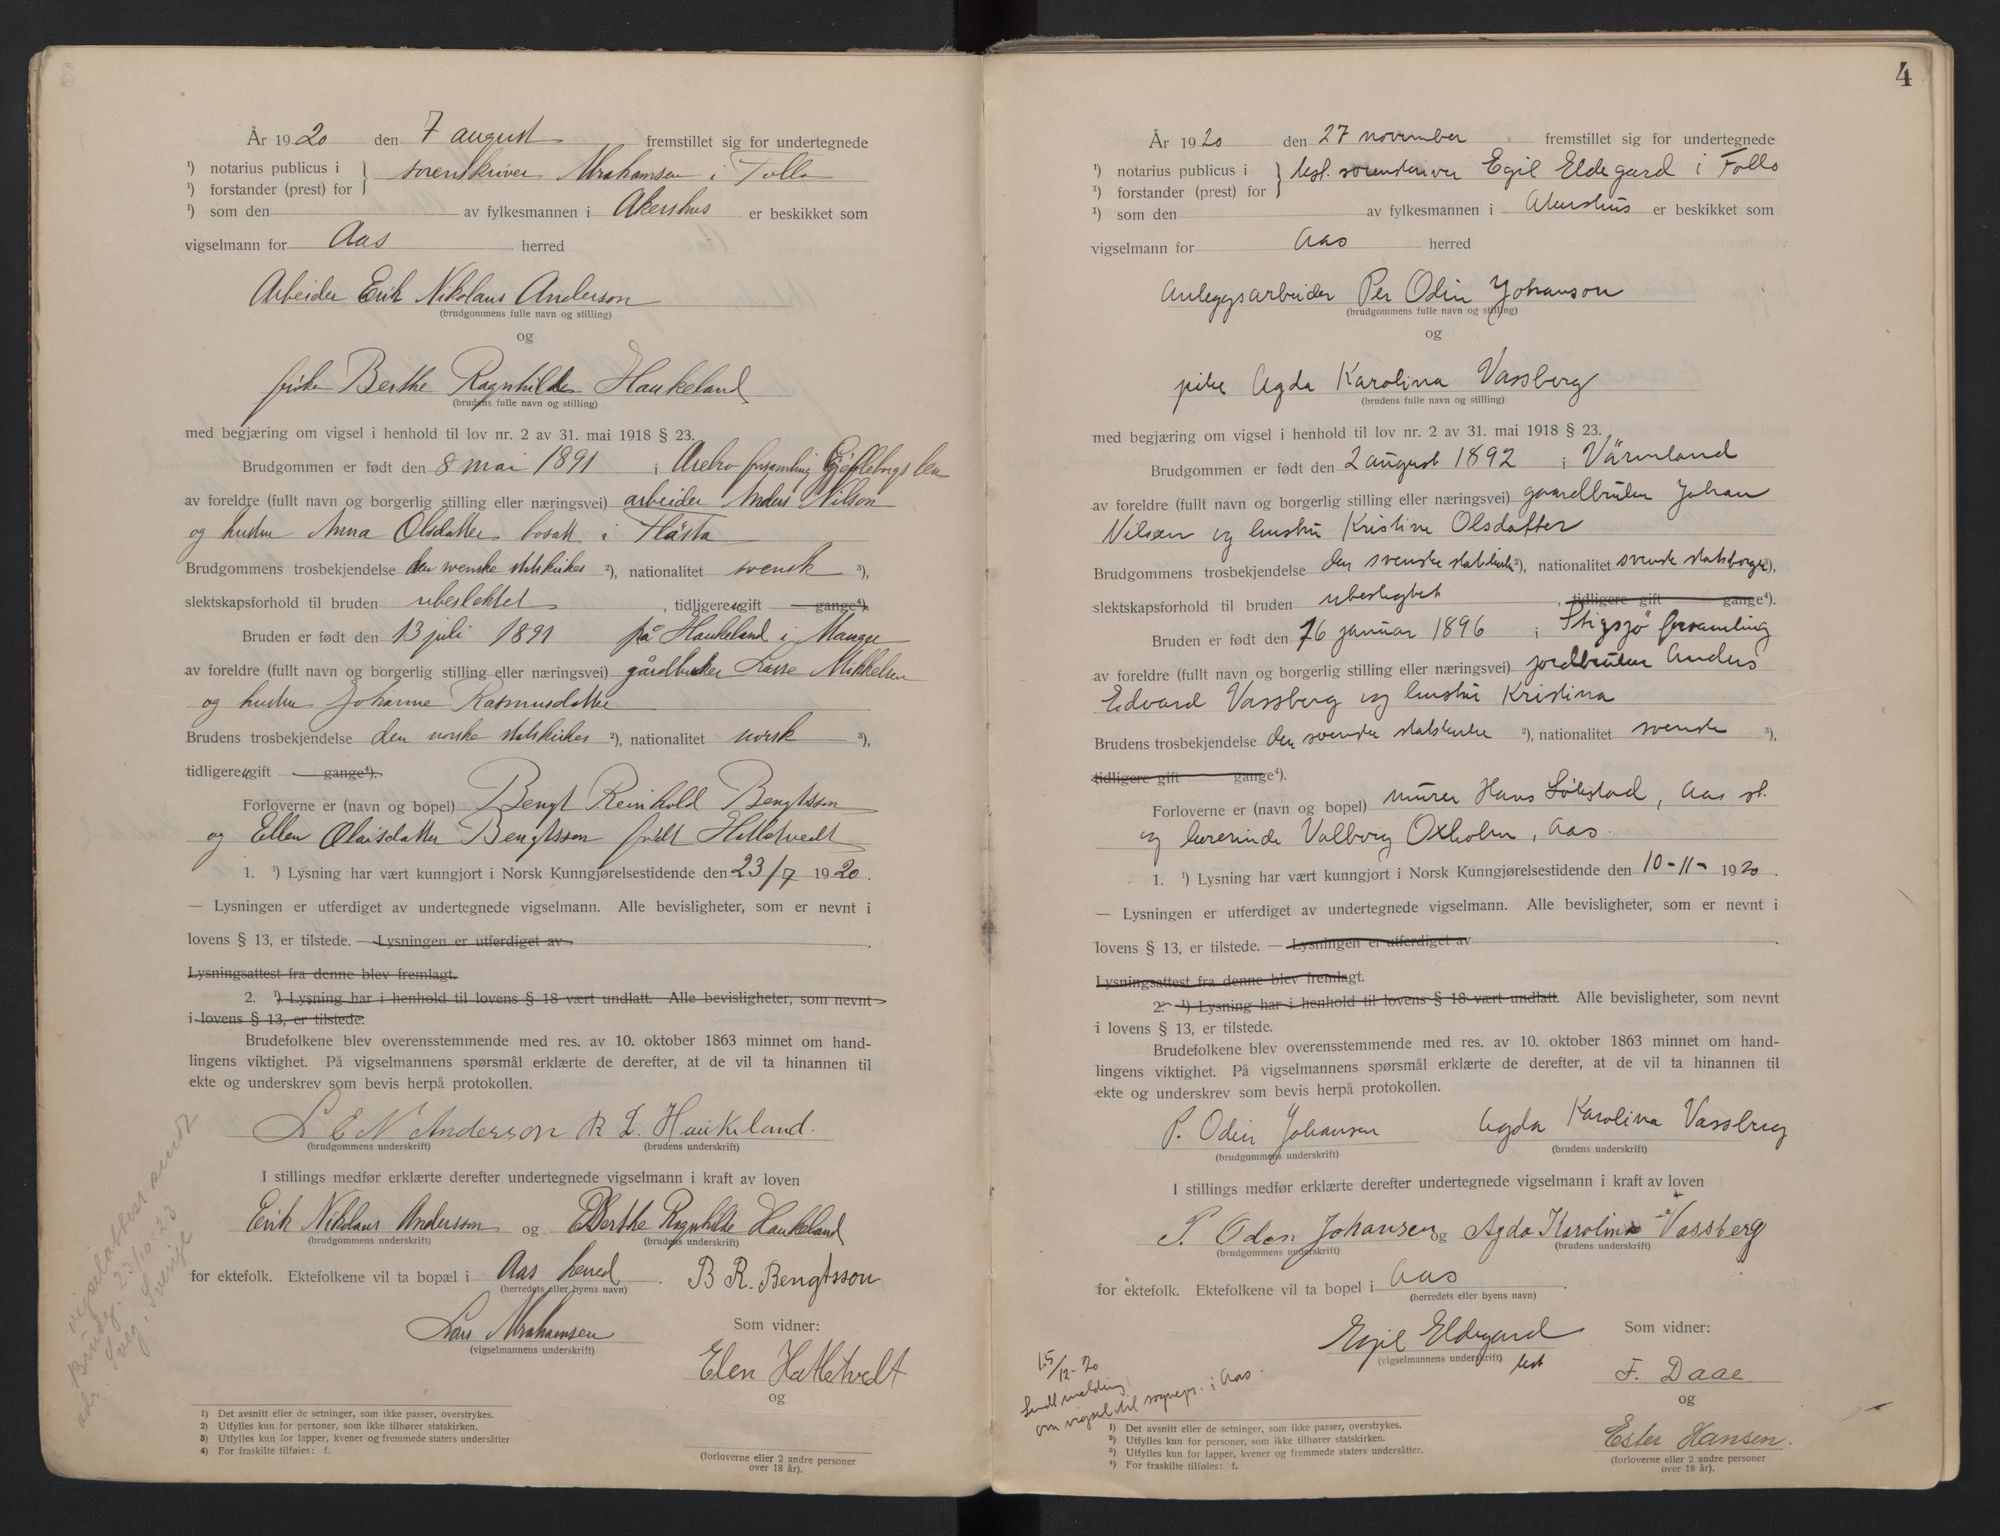 År 1920 den 7 august fremstillet sig for undertegnede
¹) notarius publicus i } sorenskriver Abrahamsen i Follo
¹) forstander (prest) for
¹) som den av fylkesmannen i Akershus er beskikket som
vigselmann for Aas herred
Arbeider Erik Nikolaus Anderson
(brudgommens fulle navn og stilling)
og
frøken Berthe Ragnhilde Haukeland
(brudens fulle navn og stilling)
med begjæring om vigsel i henhold til lov nr. 2 av 31. mai 1918 § 23.
Brudgommen er født den 8 mai 1891 i forsamling Gjefleborgs len
av foreldre (fullt navn og borgerlig stilling eller næringsvei) arbeider Anders Nilson
og hustru Anna Olsdatter bosatt i Flästa
Brudgommens trosbekjendelse den svenske statskirkes ²), nationalitet svensk ³),
slektskapsforhold til bruden ubeslektet, tidligere ugift gange⁴).
Bruden er født den 13 juli 1891 på Haukeland i Manger
av foreldre (fullt navn og borgerlig stilling eller næringsvei) gårdbruker Lasse Mikkelsen
og hustru Johanne Rasmusdatter
Brudens trosbekjendelse den norske statskirkes ²), nationalitet norsk ³),
tidligere ugift gange⁴).
Forloverne er (navn og bopel) Bengt Reinhold Bengtsson
og Ellen Olaisdatter Bengtsson født Hatletvedt
1. ¹) Lysning har vært kunngjort i Norsk Kunngjørelsestidende den 23/7 1920.
— Lysningen er utferdiget av undertegnede vigselmann. Alle bevisligheter, som er nevnt i
lovens § 13, er tilstede. — Lysningen er utferdiget av
Lysningsattest fra denne blev fremlagt.
2. ¹) Lysning har i henhold til lovens § 18 vært undlatt. Alle bevisligheter, som nevnt
i lovens § 13, er tilstede.
Brudefolkene blev overensstemmende med res. av 10. oktober 1863 minnet om hand-
lingens viktighet. På vigselmannens spørsmål erklærte de derefter, at de vil ta hinannen til
ekte og underskrev som bevis herpå protokollen.
L E N Anderson R L. Haukeland.
(brudgommens underskrift) (brudens underskrift)
I stillings medfør erklærte derefter undertegnede vigselmann i kraft av loven
Erik Nikolaus Anderson og Berthe Ragnhilde Haukeland
(brudgommens underskrift) (brudens underskrift)
for ektefolk. Ektefolkene vil ta bopæl i Aas herred. B R. Bengtsson
(herredets eller byens navn)
Lars Abrahamsen Som vidner:
(vigselmannens underskrift)
Elen Hatletvedt
og
(forloverne eller 2 andre personer
over 18 år).
¹) Det avsnitt eller de setninger, som ikke passer, overstrykes.
²) Utfylles kun for personer, som ikke tilhører statskirken.
³) Utfylles kun for lapper, kvener og fremmede staters undersåtter
⁴) For fraskilte tilføies: f.
vigselattest sendt
Brudg. 23/10-23
adr. Sveg. Sverige
4
År 1920 den 27 november fremstillet sig for undertegnede
¹) notarius publicus i } best. sorenskriver Egil Eldegard i Follo
¹) forstander (prest) for
¹) som den av fylkesmannen i Akershus er beskikket som
vigselmann for Aas herred
Anleggsarbeider Per Odin Johanson
(brudgommens fulle navn og stilling)
og
pike Agda Karolina Vassberg
(brudens fulle navn og stilling)
med begjæring om vigsel i henhold til lov nr. 2 av 31. mai 1918 § 23.
Brudgommen er født den 2 august 1892 i Värmland
av foreldre (fullt navn og borgerlig stilling eller næringsvei) gaardbruker Johan
Nilsen og hustru Kristine Olsdatter
Brudgommens trosbekjendelse den svenske statskirke ²), nationalitet svensk statsborger ³),
slektskapsforhold til bruden ubeslegtet, tidligere gift gange⁴).
Bruden er født den 16 januar 1896 i Stigsjö forsamling
av foreldre (fullt navn og borgerlig stilling eller næringsvei) jordbruker Anders
Edvard Vassberg og hustru Kristina
Brudens trosbekjendelse den svenske statskirke ²), nationalitet svenske ³),
tidligere gift gange⁴).
Forloverne er (navn og bopel) murer Hans Solstad, Aas st.
og lærerinde Valborg Oxholm, Aas.
1. ¹) Lysning har vært kunngjort i Norsk Kunngjørelsestidende den 10-11- 1920.
— Lysningen er utferdiget av undertegnede vigselmann. Alle bevisligheter, som er nevnt i
lovens § 13, er tilstede. — Lysningen er utferdiget av
Lysningsattest fra denne blev fremlagt.
2. ¹) Lysning har i henhold til lovens § 18 vært undlatt. Alle bevisligheter, som nevnt
i lovens § 13, er tilstede.
Brudefolkene blev overensstemmende med res. av 10. oktober 1863 minnet om hand-
lingens viktighet. På vigselmannens spørsmål erklærte de derefter, at de vil ta hinannen til
ekte og underskrev som bevis herpå protokollen.
P. Odin Johansen Agda Karolina Vassberg
(brudgommens underskrift) (brudens underskrift)
I stillings medfør erklærte derefter undertegnede vigselmann i kraft av loven
P. Oden Johansen og Agda Karolina Vassberg
(brudgommens underskrift) (brudens underskrift)
for ektefolk. Ektefolkene vil ta bopel i Aas
(herredets eller byens navn)
Egil Eldegard Som vidner:
(vigselmannens underskrift) best
F. Daae
og
Ester Hansen.
(forloverne eller 2 andre personer
over 18 år).
15/12-20
Sendt melding
om vigsel til sognepr. i Aas.
¹) Det avsnitt eller de setninger, som ikke passer, overstrykes.
²) Utfylles kun for personer, som ikke tilhører statskirken.
³) Utfylles kun for lapper, kvener og fremmede staters undersåtter.
⁴) For fraskilte tilføies: f.